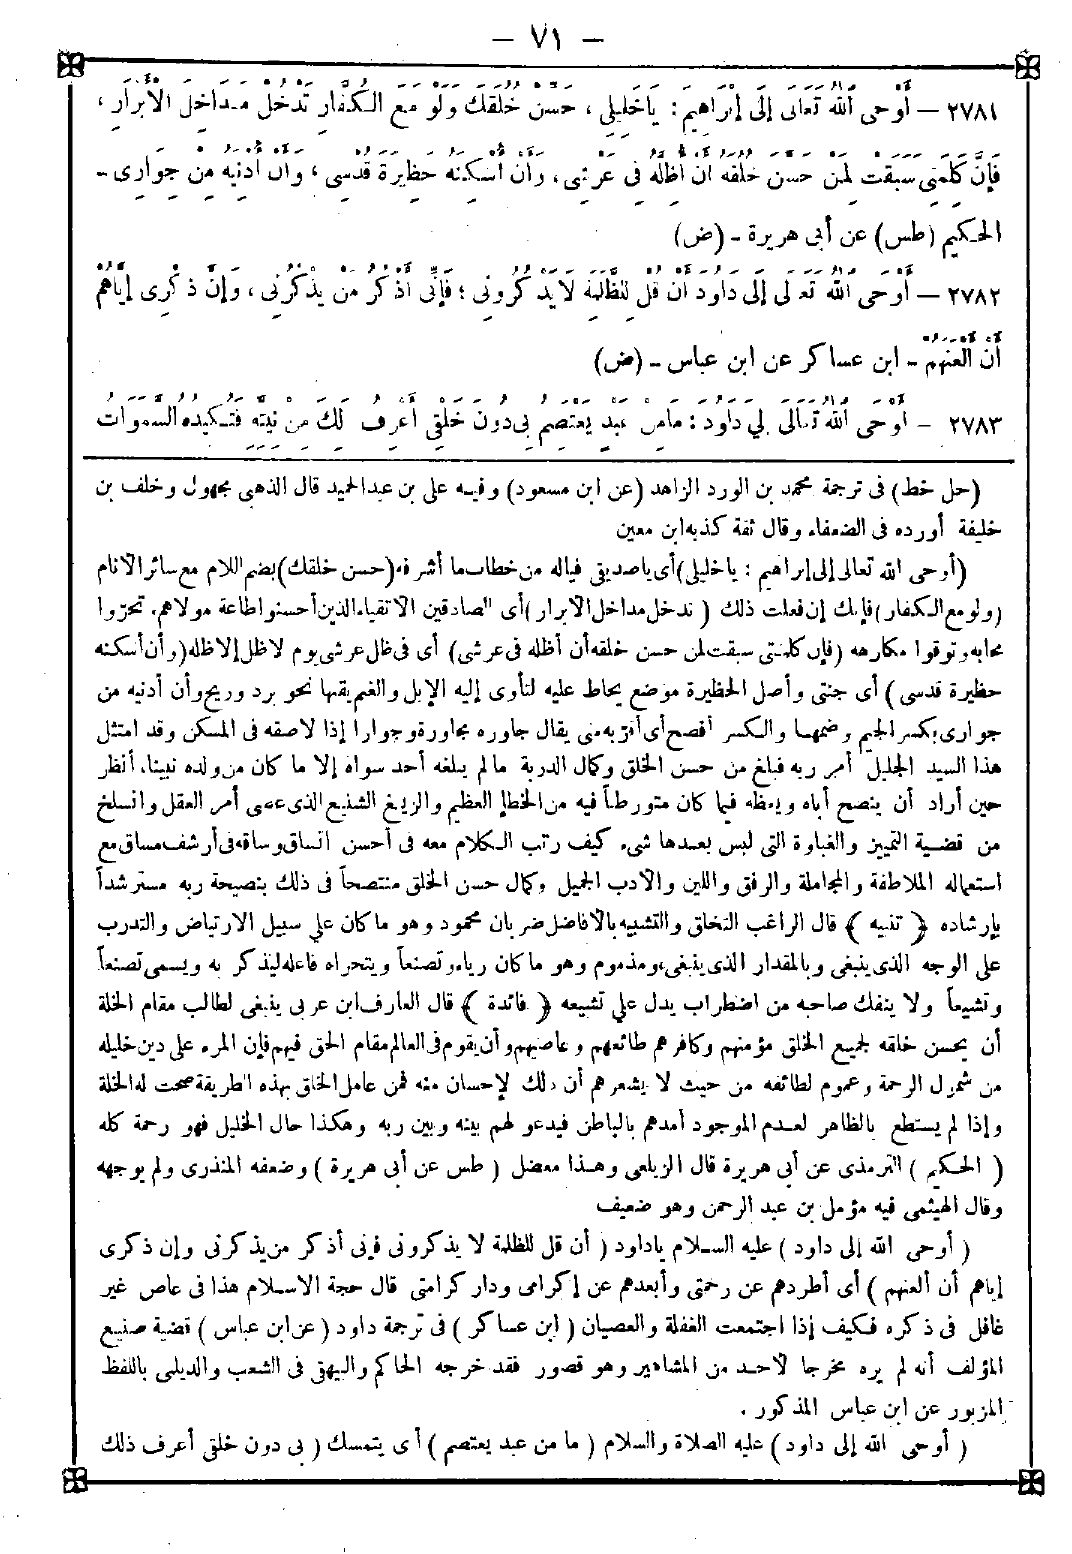 — ٧١ —
٢٧٨١ — أَوْحَى اللهُ تَعَالَى إِلَى إِبْرَاهِيمَ: يَاخَلِيلِي، حَسِّنْ خُلُقَكَ وَلَوْ مَعَ الْكُفَّارِ تَدْخُلْ مَدَاخِلَ الْأَبْرَارِ،
فَإِنَّ كَلِمَتِي سَبَقَتْ لِمَنْ حَسُنَ خُلُقُهُ أَنْ أُظِلَّهُ فِي عَرْشِي، وَأَنْ أُسْكِنَهُ حَظِيرَةَ قُدْسِي، وَأَنْ أُدْنِيَهُ مِنْ جِوَارِي -
الحكيم (طس) عن أبى هريرة - (ض)
٢٧٨٢ — أَوْحَى اللهُ تَعَالَى إِلَى دَاوُدَ أَنْ قُلْ لِلظَّلَمَةِ لَا يَذْكُرُونِي؛ فَإِنِّي أَذْكُرُ مَنْ يَذْكُرُنِي، وَإِنَّ ذِكْرِي إِيَّاهُمْ
أَنْ أَلْعَنَهُمْ - ابن عساكر عن ابن عباس - (ض)
٢٧٨٣ - أَوْحَى اللهُ تَعَالَى إِلَى دَاوُدَ: مَامِنْ عَبْدٍ يَعْتَصِمُ بِي دُونَ خَلْقِي أَعْرِفُ ذَلِكَ مِنْ نِيَّتِهِ فَتَكِيدُهُ السَّمَوَاتُ
(حل خط) فى ترجمة محمد بن الورد الزاهد (عن ابن مسعود) وفيه على بن عبدالحميد قال الذهبى مجهول وخلف بن
خليفة أورده فى الضعفاء وقال ثقة كذبه ابن معين
(أوحى الله تعالى إلى إبراهيم: ياخليلى) أى ياصديقى فياله من خطاب ما أشرفه (حسن خلقك) بضم اللام مع سائر الأنام
(ولو مع الكفار) فإنك إن فعلت ذلك (تدخل مداخل الأبرار) أى الصادقين الأتقياء الذين أحسنوا طاعة مولاهم، تحروا
محابه وتوقوا مكارهه (فإن كلمتى سبقت لمن حسن خلقه أن أظله فى عرشى) أى فى ظل عرشى يوم لاظل إلاظله (وأن أسكنه
حظيرة قدسى) أى جنتى وأصل الحظيرة موضع يحاط عليه لتأوى إليه الإبل والغنم يقيها نحو برد وريح وأن أدنيه من
جوارى بكسر الجيم وضمها والكسر أفصح أى أقربه منى يقال جاوره مجاورة وجوارا إذا لاصقه فى المسكن وقد امتثل
هذا السيد الجليل أمر ربه فبلغ من حسن الخلق وكمال الدربة مالم يبلغه أحد سواه إلا ما كان من ولده نبينا، أنظر
حين أراد أن ينصح أباه ويعظه فيما كان متورطاً فيه من الخطإ العظيم والزيغ الشنيع الذى عصى أمر العقل وانسلخ
من قضية التمييز والغباوة التى ليس بعدها شىء كيف رتب الكلام معه فى أحسن اتساق وساقه فى أرشف مساق مع
استعماله الملاطفة والمجاملة والرفق واللين والأدب الجميل وكمال حسن الخلق منتصحاً فى ذلك بنصيحة ربه مسترشداً
بإرشاده ﴿تنبيه﴾ قال الراغب التخلق والتشبيه بالأفاضل ضربان محمود وهو ما كان على سبيل الارتياض والتدرب
على الوجه الذى ينبغى وبالمقدار الذى ينبغى، ومذموم وهو ما كان رياء وتصنعاً ويتحراه فاعله ليذكر به ويسمى تصنعاً
وتشيعاً ولا ينفك صاحبه من اضطراب يدل على تشيعه ﴿فائدة﴾ قال العارف ابن عربى ينبغى لطالب مقام الخلة
أن يحسن خلقه لجميع الخلق مؤمنهم وكافرهم طائعهم وعاصيهم وأن يقوم فى العالم مقام الحق فيهم فإن المرء على دين خليله
من شمول الرحمة وعموم لطائفه من حيث لا يشعرهم أن ذلك الإحسان منه فمن عامل الخلق بهذه الطريقة صحت له الخلة
وإذا لم يستطع بالظاهر لعدم الموجود أمدهم بالباطن فيدعو لهم بينه وبين ربه وهكذا حال الخليل فهو رحمة كله
(الحكيم) الترمذى عن أبى هريرة قال الزيلعى وهذا معضل (طس عن أبى هريرة) وضعفه المنذرى ولم يوجهه
وقال الهيثمى فيه مؤمل بن عبد الرحمن وهو ضعيف
(أوحى الله إلى داود) عليه السلام ياداود (أن قل للظلمة لا يذكرونى فإنى أذكر من يذكرنى وإن ذكرى
إياهم أن ألعنهم) أى أطردهم عن رحمتى وأبعدهم عن إكرامى ودار كرامتى قال حجة الاسلام هذا فى عاص غير
غافل فى ذكره فكيف إذا اجتمعت الغفلة والعصيان (ابن عساكر) فى ترجمة داود (عن ابن عباس) قضية صنيع
المؤلف أنه لم يره مخرجا لأحد من المشاهير وهو قصور فقد خرجه الحاكم والبيهقى فى الشعب والديلمى باللفظ
المزبور عن ابن عباس المذكور.
(أوحى الله إلى داود) عليه الصلاة والسلام (ما من عبد يعتصم) أى يتمسك (بى دون خلقى أعرف ذلك